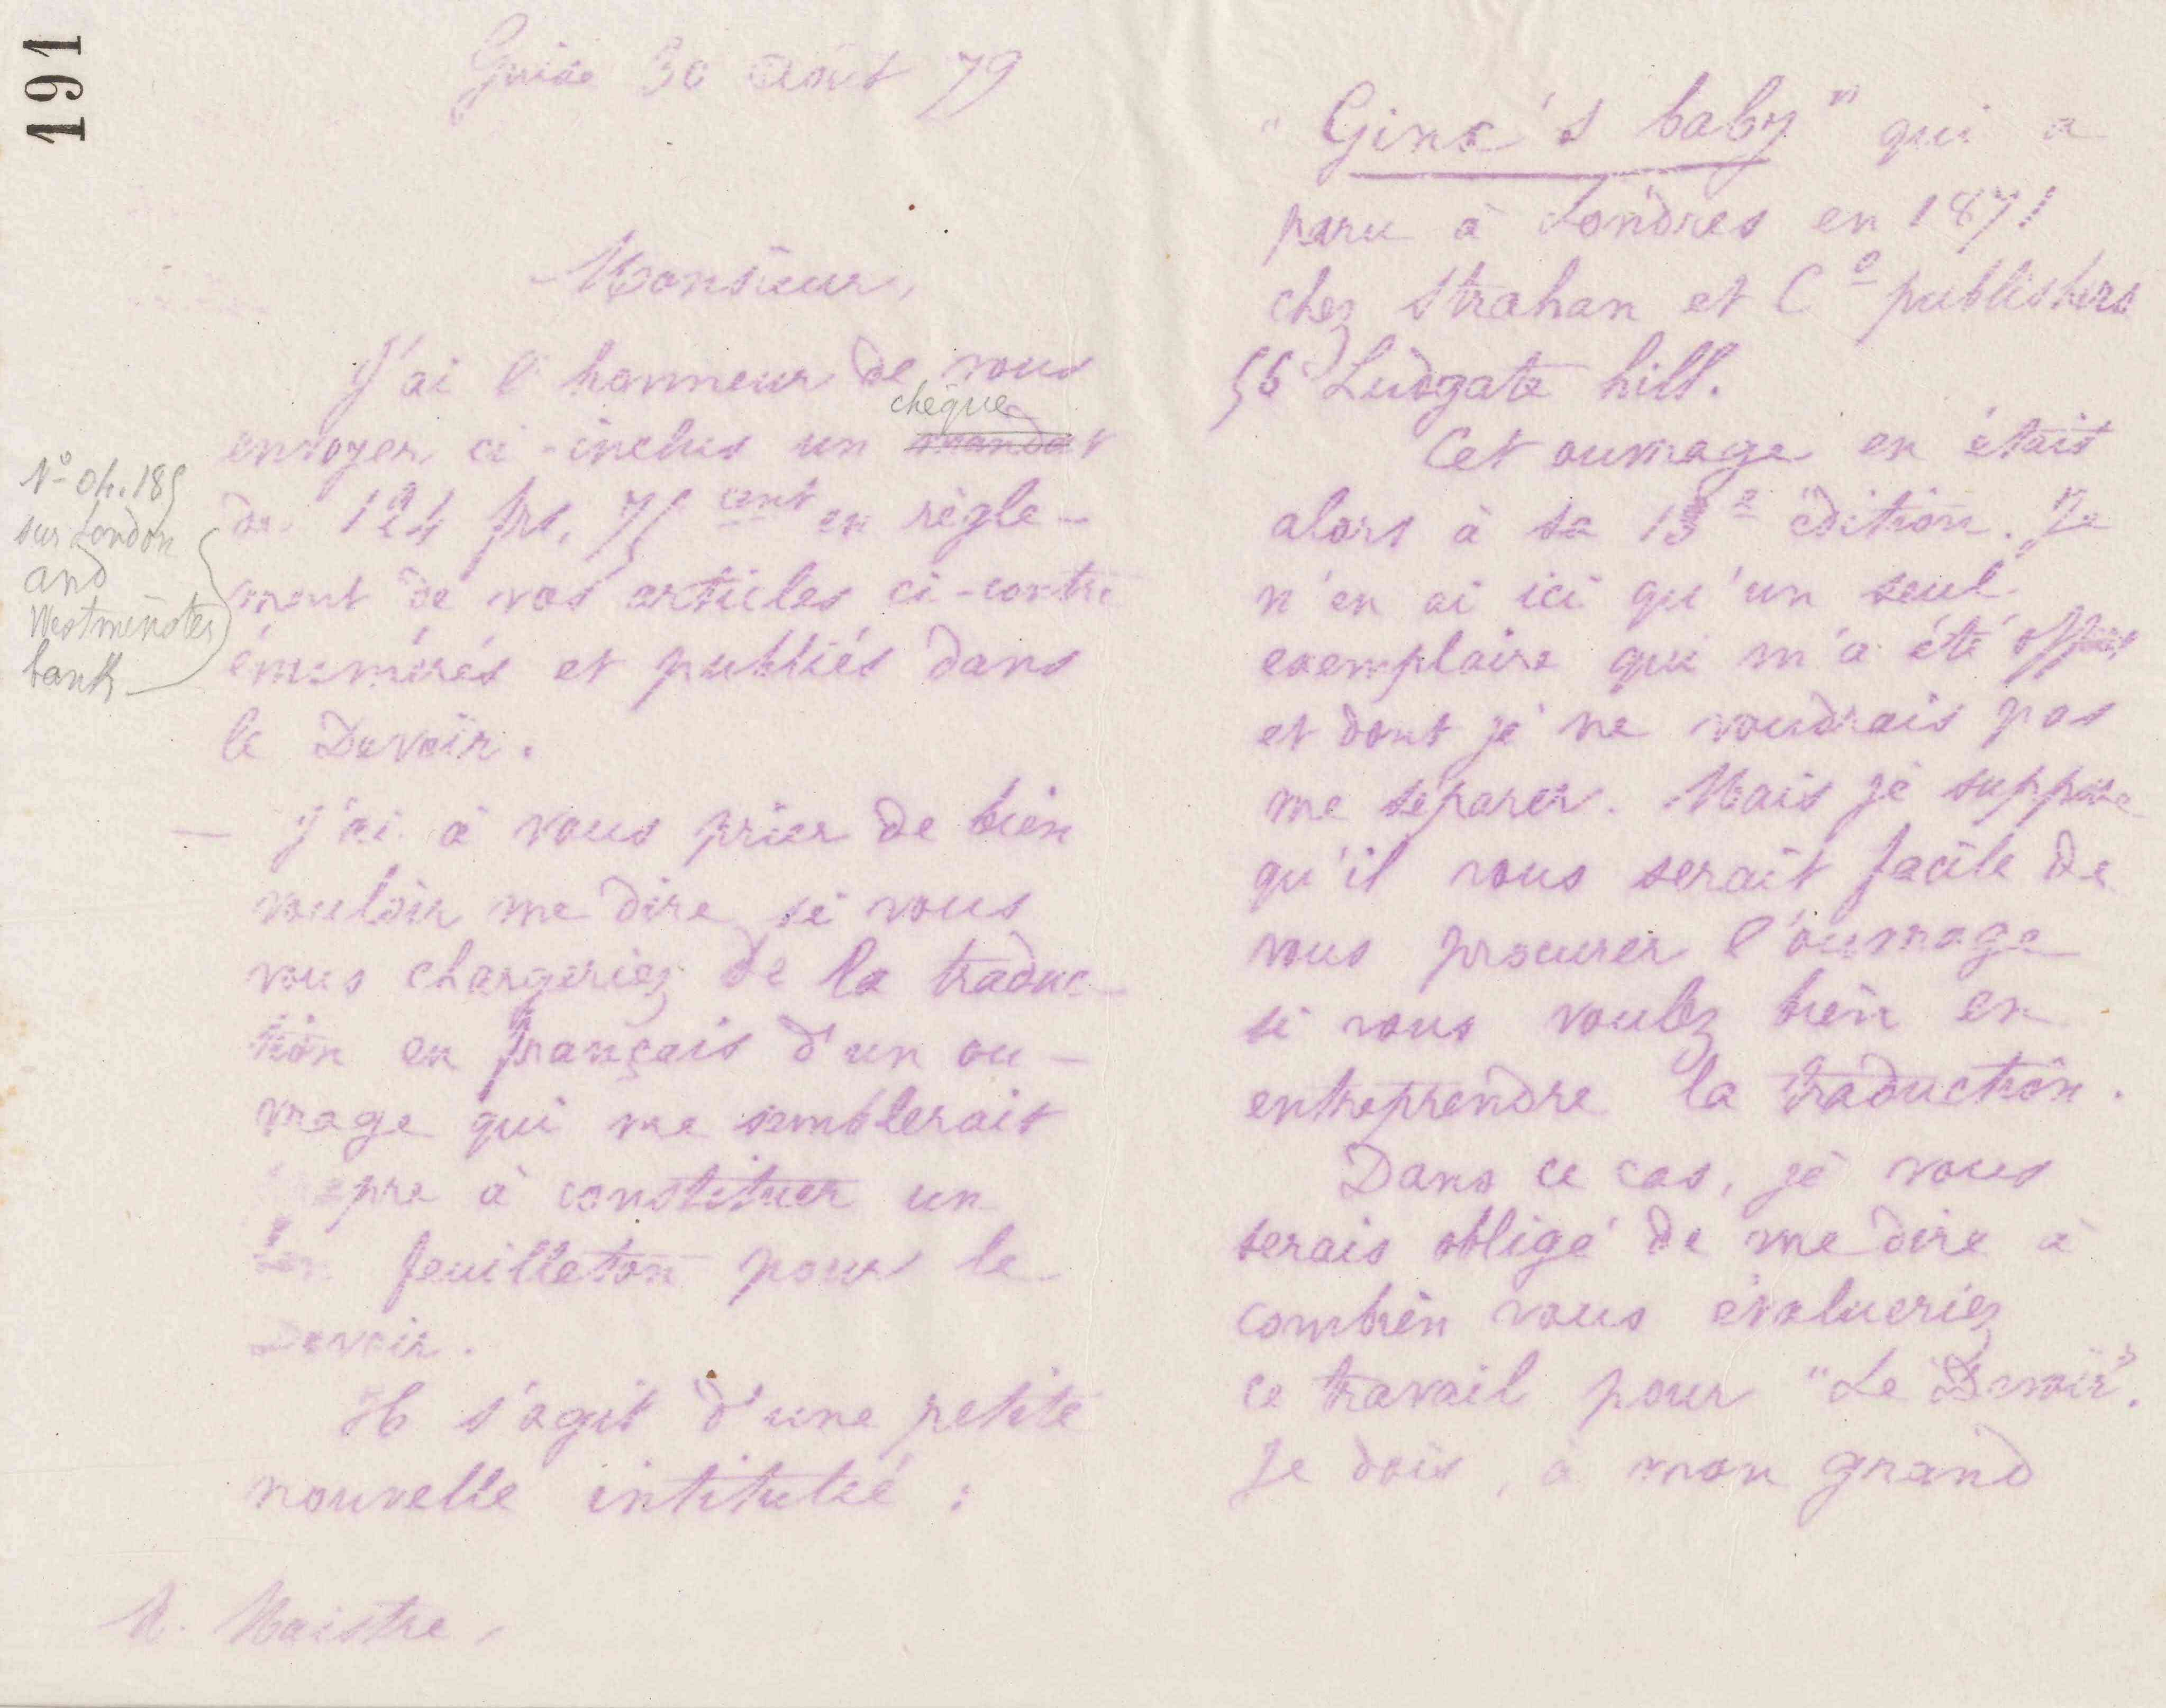 191
Guise 30 août 79
Monsieur,
J'ai l'honneur de vous
chèque
envoyer ci-inclus un mandat
de frs, 75 cent en règle-
ment de vos articles ci-contre
énumérés et publiés dans
le Devoir.
N° 04.185
sur London
and
Westminster
bank
— J'ai à vous prier de bien
vouloir me dire si vous
vous chargeriez de la traduc-
tion en français d'un ou-
vrage qui me semblerait
propre à constituer un
bon feuilleton pour le
Devoir.
Il s'agit d'une petite
nouvelle intitulée :
M. Maistre,
"Ginx's baby" qui a
paru à Londres en 1871
chez Strahan et C° publishers
56 Ludgate hill.
Cet ouvrage en était
alors à sa 13e édition. Je
n'en ai ici qu'un seul
exemplaire qui m'a été offert
et dont je ne voudrais pas
me séparer. Mais je suppose
qu'il vous serait facile de
vous procurer l'ouvrage
si vous voulez bien en
entreprendre la traduction.
Dans ce cas, je vous
serais obligé de me dire à
combien vous évalueriez
ce travail pour "Le Devoir".
Je dois, à mon grand